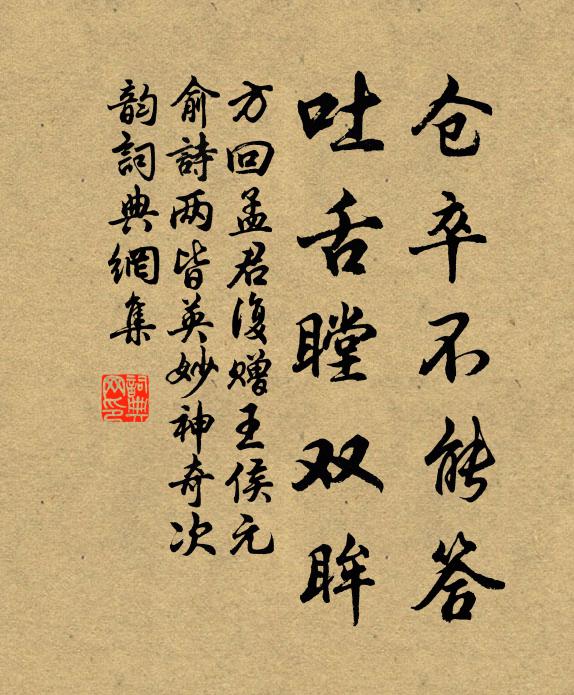 仓卒不能答
吐舌瞠双眸
方回孟君復赠王侯元
俞詩两皆英妙神奇次
韵詞典網集
詞典網印